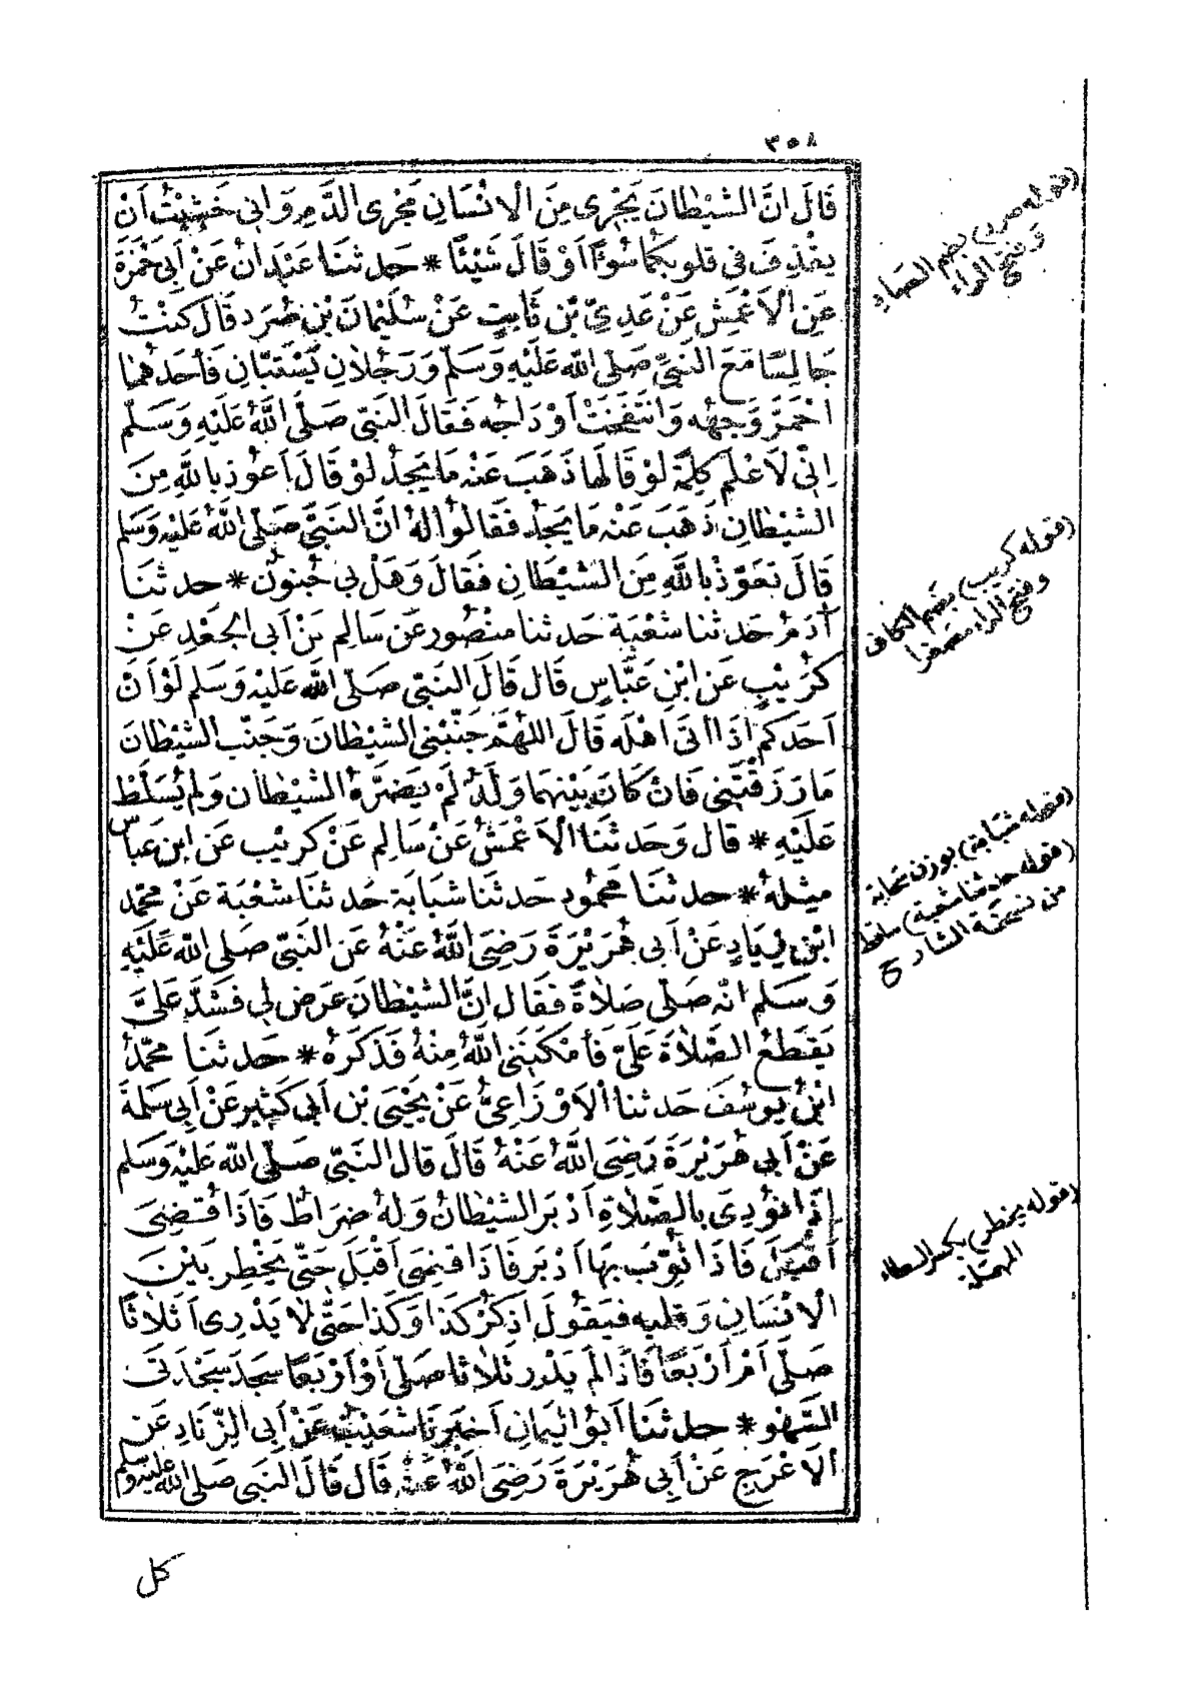 ٣٥٨
قَالَ اِنَّ الشَّيْطَانَ يَجْرِى مِنَ الْاِنْسَانِ مَجْرَى الدَّمِ وَاِنِّى خَشِيْتُ اَنْ
يَقْذِفَ فِى قُلُوبِكُمَا سُوْءًا اَوْ قَالَ شَيْئًا * حَدثنَا عَبْدَانُ عَنْ اَبِى حَمْزَةَ
عَنِ الْاَعْمَشِ عَنْ عَدِىِّ بْنِ ثَابِتٍ عَنْ سُلَيْمَانَ بْنِ صُرَدٍ قَالَ كُنْتُ
جَالِسًا مَعَ النَّبِىِّ صَلَّى اللّٰه عَلَيْهِ وَسَلَّمَ وَرَجُلَانِ يَسْتَبَّانِ فَاَحَدُهُمَا
احْمَرَّ وَجْهُه وَانْتَفَخَتْ اَوْدَاجُه فَقَالَ النَّبِىّ صَلَّى اللّٰهُ عَلَيْهِ وَسَلَّم
اِنِّى لَاَعْلَم كَلِمَةً لَوْ قَالَهَا ذَهَبَ عَنْه مَا يَجِدُ لَوْ قَالَ اَعُوْذ بِاللّٰهِ مِنَ
الشَّيْطَانِ ذَهَبَ عَنْه مَا يَجِدُ فَقَالُوْا لَهُ اِنَّ النَّبِىَّ صَلّى اللّٰهُ عَلَيْهِ وَسَلم
قَالَ تَعَوَّذْ بِاللّٰهِ مِنَ الشَّيْطَانِ فَقَالَ وَهَلْ بِى جُنُونٌ * حدثنَا
آدَمُ حَدثنا شُعْبَة حَدثنا مَنْصُور عَن سَالِم بْنِ اَبِى الجَعْدِ عَنْ
كُرَيْبٍ عَنِ ابْنِ عَبَّاسٍ قَال قَالَ النَّبِىّ صَلّى اللّٰه عَلَيْه وَسَلم لَوْ اَنَّ
اَحَدَكُم اِذَا اَتَى اَهْلَه قَالَ اللّٰهُمَّ جَنِّبْنِى الشَّيْطَانَ وَجَنِّب الشَّيْطَانَ
مَا رَزَقْتَنِى فَاِنْ كَانَ بَيْنَهُمَا وَلَدٌ لَمْ يَضُرَّهُ الشَّيْطَان وَلَم يُسَلَّطْ
عَلَيْهِ * قال وَحَدثنَا الْاَعْمَشُ عَنْ سَالِم عَنْ كُرَيْب عَن ابن عَبَّاس
مِثلَهُ * حدثنَا مَحْمُود حَدثنَا شَبَابَة حَدثنَا شُعْبَة عَنْ مُحَمَّد
ابْنِ زِيَادٍ عَنْ اَبِى هُرَيْرَةَ رَضِىَ اللّٰهُ عَنْهُ عَنِ النَّبِىّ صَلى اللّٰه عَلَيْهِ
وَسَلم اَنّه صَلّى صَلَاةً فَقَال اِنَّ الشَّيْطَانَ عَرَض لِى فَشَدَّ عَلَىَّ
يَقْطَعُ الصَّلَاةَ عَلَىَّ فَاَمْكَنَنِى اللّٰهُ مِنْهُ فَذَكَرَهُ * حَدثنَا مُحَمَّدُ
ابْنُ يُوسُفَ حَدثنا الْاَوْزَاعِىُّ عَنْ يَحْيَى بْن اَبِى كَثِيرٍ عَنْ اَبِى سَلَمَةَ
عَنْ اَبِى هُرَيْرَةَ رَضِىَ اللّٰهُ عَنْهُ قَالَ قَال النَّبِىّ صَلّى اللّٰه عَلَيْه وَسَلم
اِذَا نُوْدِىَ بِالصَّلَاةِ اَدْبَرَ الشَّيْطَانُ وَلَهُ ضُرَاطٌ فَاِذَا قُضِىَ
اَقْبَلَ فَاِذَا ثُوِّبَ بِهَا اَدْبَرَ فَاِذَا قُضِىَ اَقْبَلَ حَتَّى يَخْطِر بَيْنَ
الْاِنْسَانِ وَقَلبِه فَيَقُولَ اذْكُرْ كَذَا وَكَذَا حَتَّى لَا يَدْرِى اَثَلَاثًا
صَلَّى اَمْ اَرْبَعًا فَاِذَا لَمْ يَدْرِ ثَلَاثًا صَلّى اَوْ اَرْبَعًا سَجَدَ سَجْدَتَى
السَّهْوِ * حدثنَا اَبُو الْيَمَانِ اَخبَرَنَا شُعَيْبٌ عَنْ اَبِى الزِّنَادِ عَن
الْاَعْرَجِ عَنْ اَبِى هُرَيْرَةَ رَضِىَ اللّٰهُ عَنْهُ قَال قَالَ النَّبِى صَلى اللّٰه عليه وسلم
كل
(قوله صرد) بضم الصاد
وفتح الراء
(قوله كريب) بضم الكاف
وفتح الراء مصغرا
(قوله شبابة) بوزن سحابة
(قوله حدثنا شعبة) ساقط
من نسخة الشارح
(قوله يخطر) بكسر الطاء
المهملة